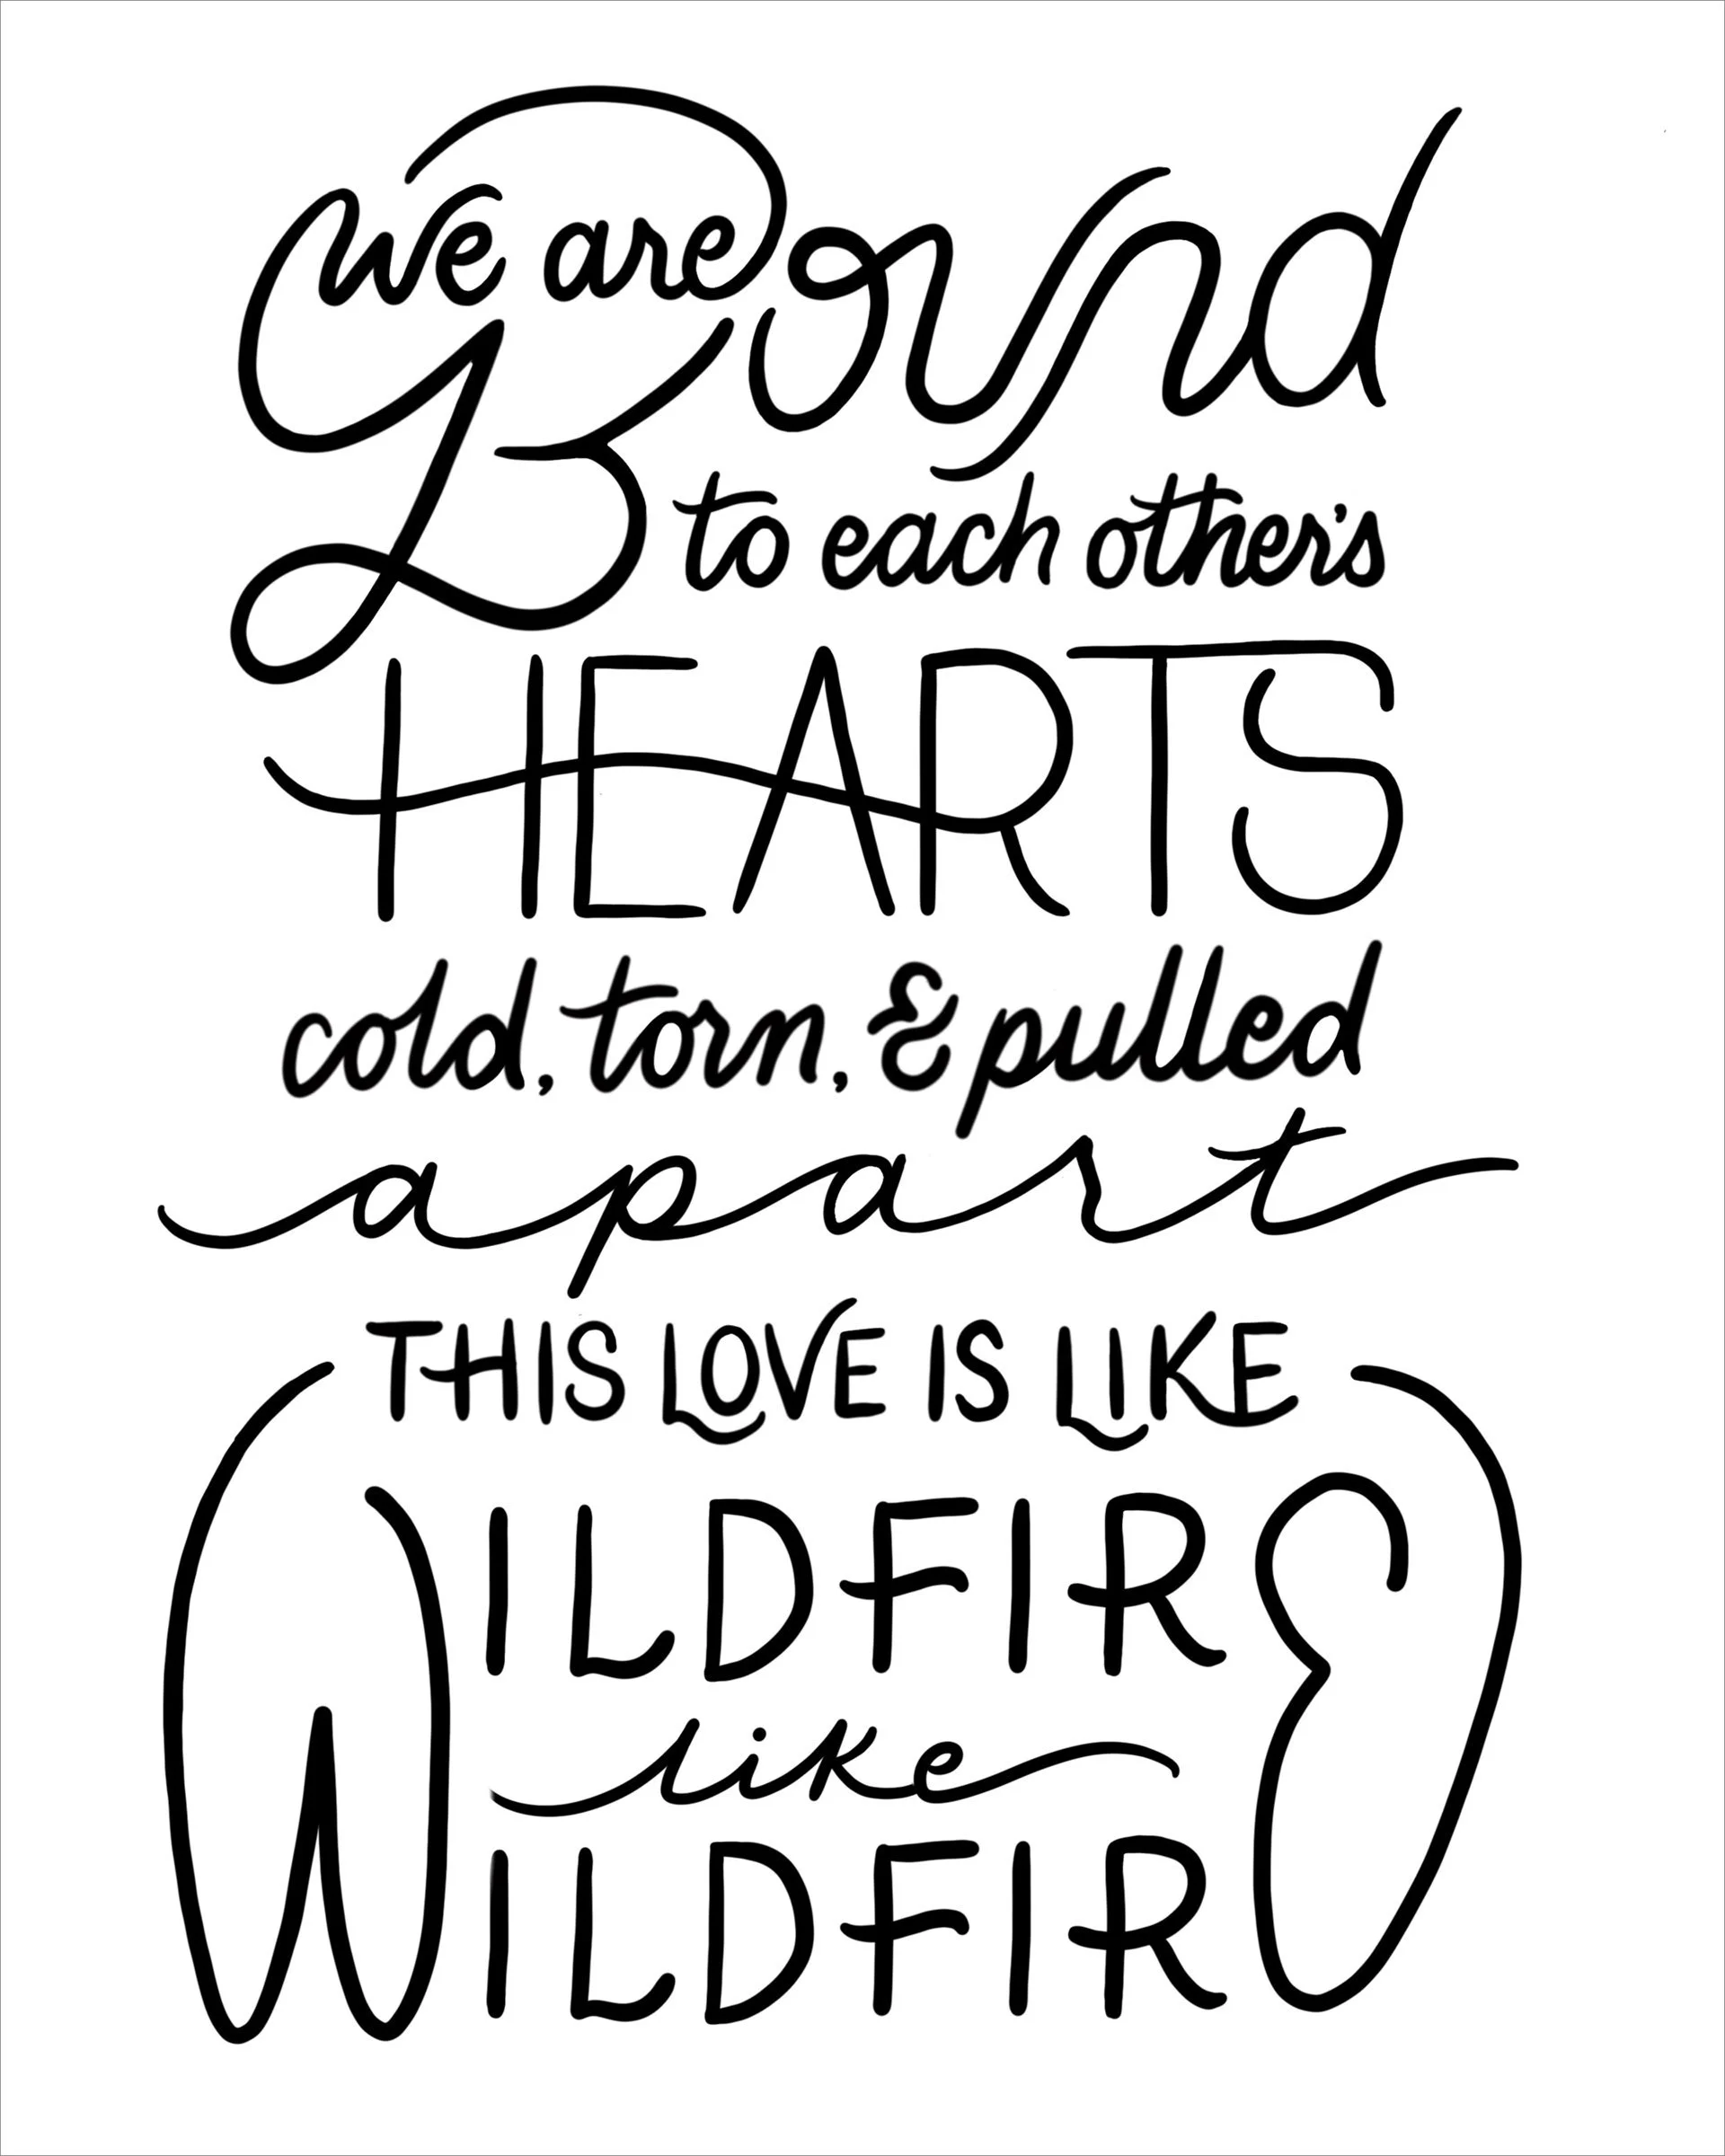 We are
Bound
to each other's
HEARTS
cold, torn, & pulled
apart
THIS LOVE IS LIKE
WILDFIRE
like
WILDFIRE